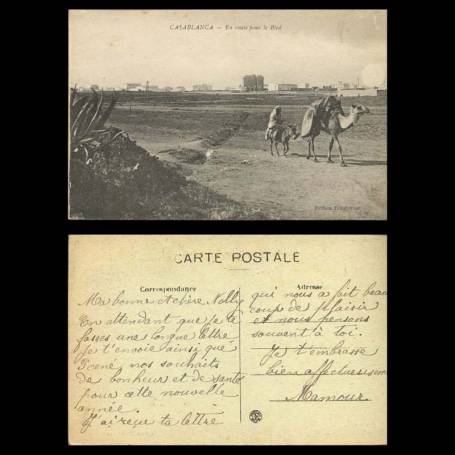 CASABLANCA — En route pour le Bled
CARTE POSTALE
Correspondance
Adresse
Ma bonne et chère Nelly
En attendant que je te
fasses une longue lettre
je t'envoie ainsi que
nos souhaits
de bonheur et de santé
pour cette nouvelle
année.
J'ai reçu ta lettre
qui nous a fait beau
coup de plaisir
et nous pensons
souvent à toi.
Je t'embrasse
bien affectueusement
Mamour.